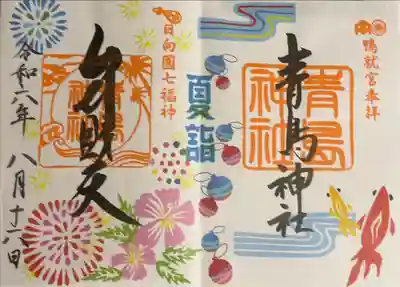 鴨就宮奉拝
青島神社
青島
神社
夏詣
日向國七福神
弁財天
青島
神社
令和六年 八月十八日